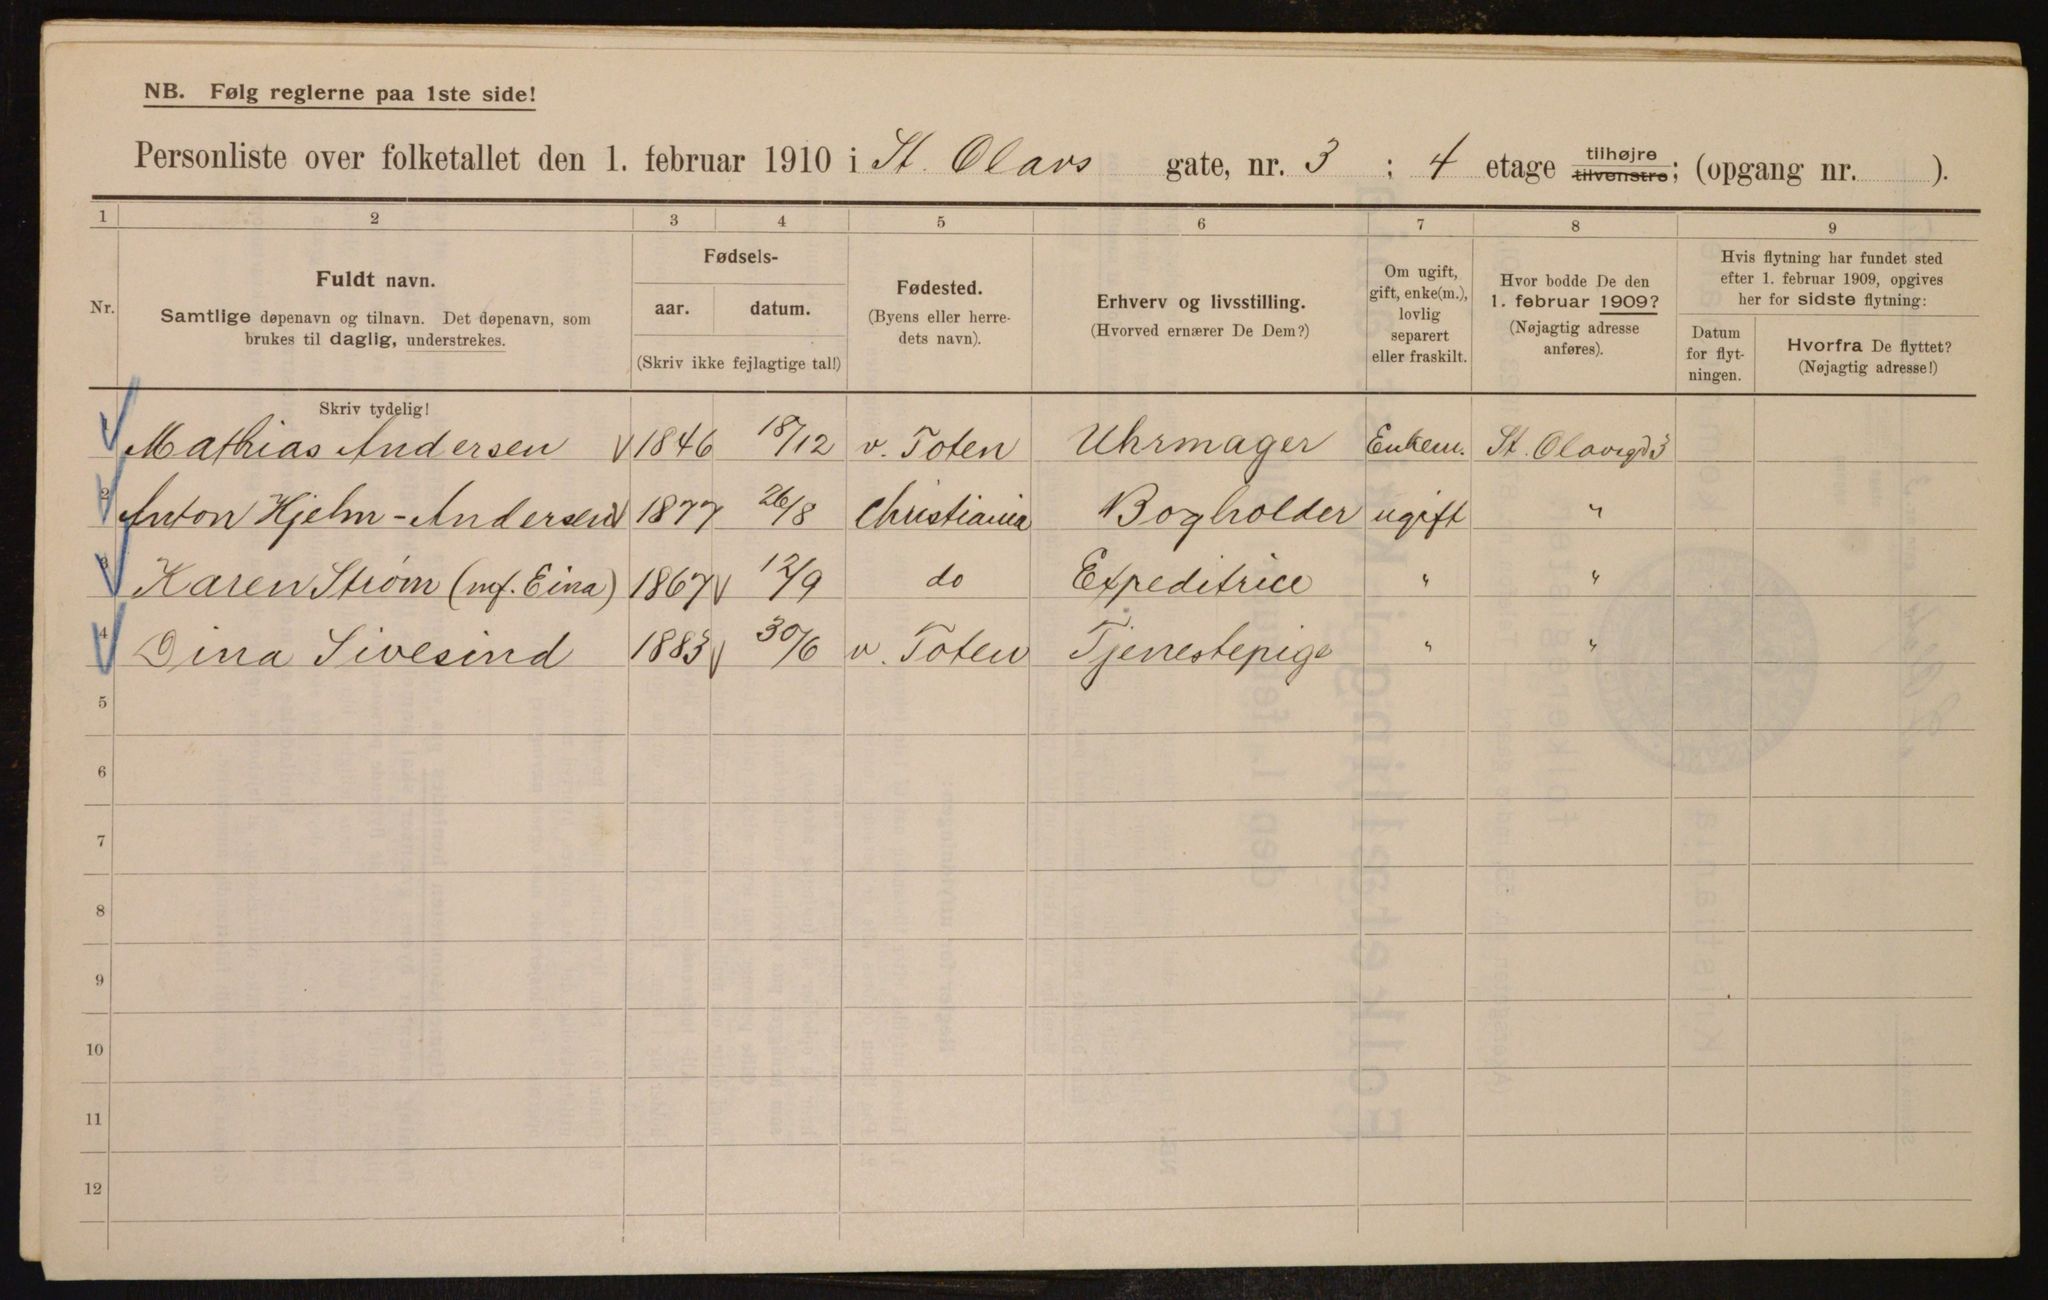 NB. Følg reglerne paa 1ste side!
Personliste over folketallet den 1. februar 1910 i St. Olavs gate, nr. 3 ; 4 etage tilhøjre tilvenstre; (opgang nr. ).
1 2 3 4 5 6 7 8 9
Nr.
Fuldt navn.
Samtlige døpenavn og tilnavn. Det døpenavn, som
brukes til daglig, understrekes.
Fødsels-
aar. datum.
(Skriv ikke fejlagtige tal!)
Fødested.
(Byens eller herre-
dets navn).
Erhverv og livsstilling.
(Hvorved ernærer De Dem?)
Om ugift,
gift, enke(m.),
lovlig
separert
eller fraskilt.
Hvor bodde De den
1. februar 1909?
(Nøjagtig adresse
anføres).
Hvis flytning har fundet sted
efter 1. februar 1909, opgives
her for sidste flytning:
Datum
for flyt-
ningen.
Hvorfra De flyttet?
(Nøjagtig adresse!)
Skriv tydelig!
1 Mathias Andersen 1846 18/12 v. Toten Uhrmager Enkem. St. Olavsgd 3
2 Anton Hjelm-Andersen 1877 26/8 Christiania Bogholder ugift "
3 Karen Strøm (mf. Eina) 1867 12/9 do Expeditrice " "
4 Dina Sivesind 1883 30/6 v. Toten Tjenestepige " "
5
6
7
8
9
10
11
12